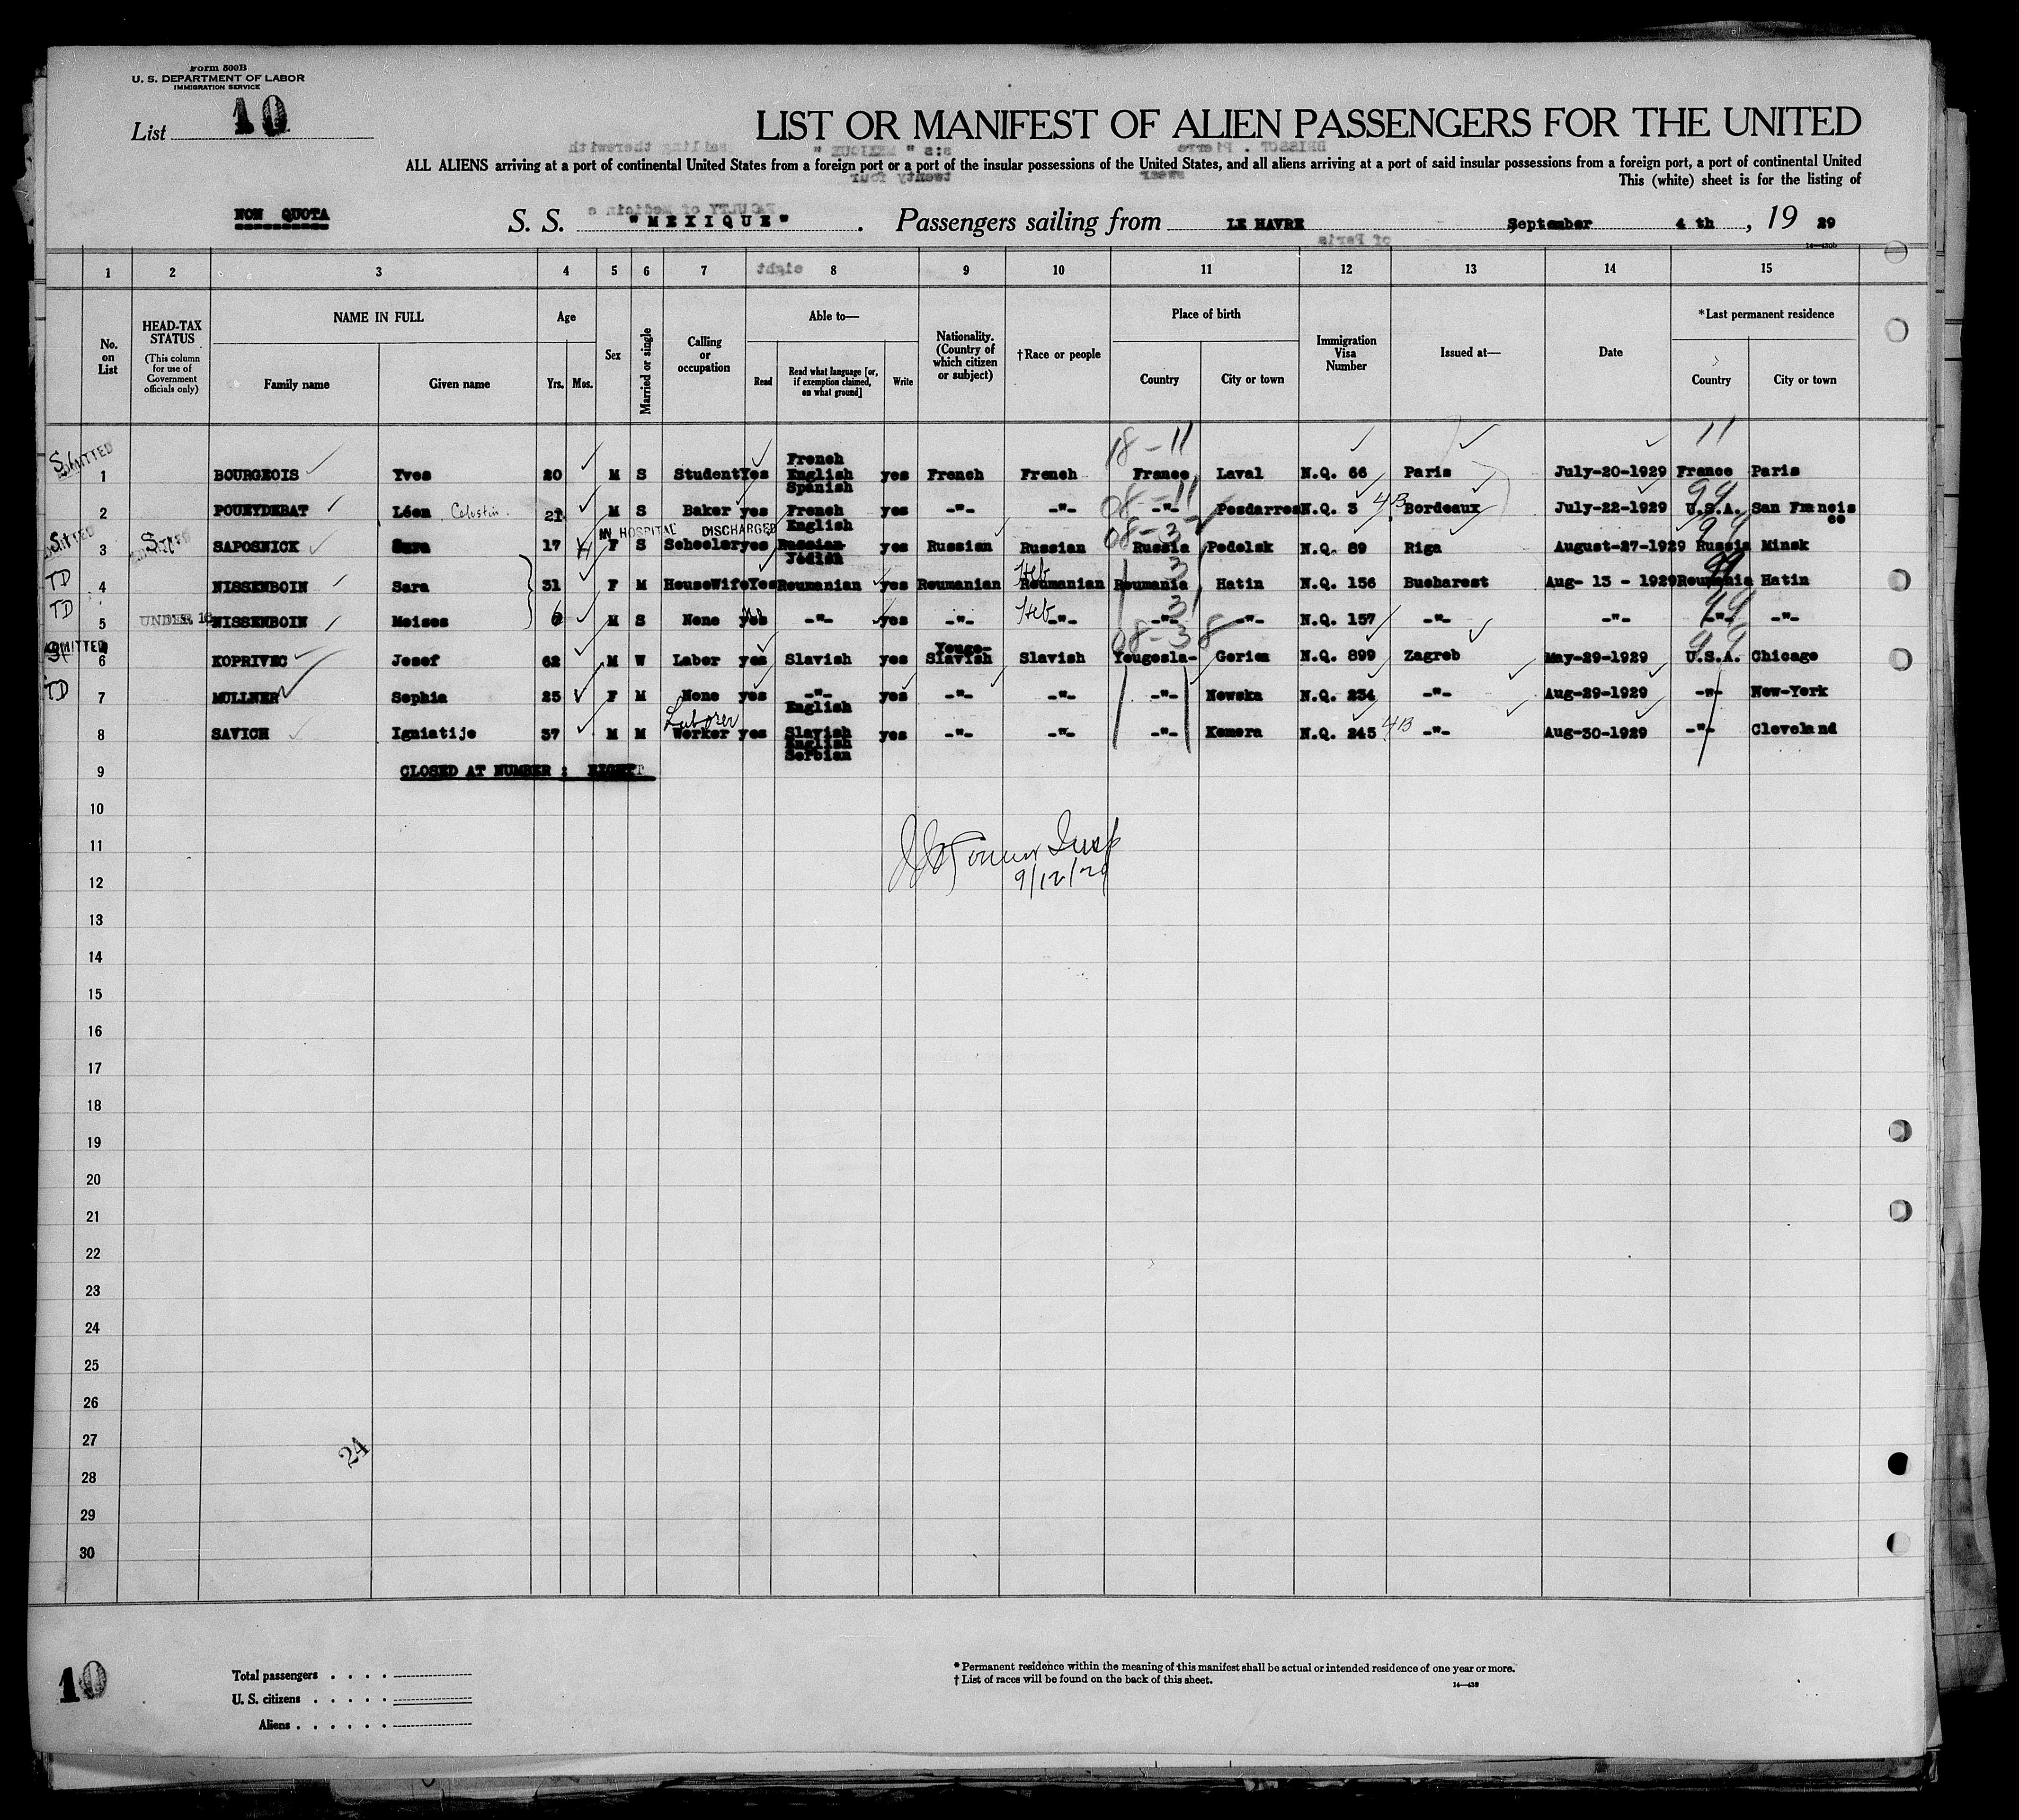 Form 500B
U. S. DEPARTMENT OF LABOR
IMMIGRATION SERVICE
List 10
LIST OR MANIFEST OF ALIEN PASSENGERS FOR THE UNITED
ALL ALIENS arriving at a port of continental United States from a foreign port or a port of the insular possessions of the United States, and all aliens arriving at a port of said insular possessions from a foreign port, a port of continental United
This (white) sheet is for the listing of
NON QUOTA S. S. "MEXIQUE". Passengers sailing from LE HAVRE September 4 th, 19 29
1 2 3 4 5 6 7 8 9 10 11 12 13 14 15
No. on List
HEAD-TAX STATUS (This column for use of Government officials only)
NAME IN FULL Family name Given name
Age Yrs. Mos.
Sex
Married or single
Calling or occupation
Able to— Read Read what language [or, if exemption claimed, on what ground] Write
Nationality. (Country of which citizen or subject)
†Race or people
Place of birth Country City or town
Immigration Visa Number
Issued at—
Date
*Last permanent residence Country City or town
18-11 11
ADMITTED 1 BOURGEOIS Yves 20 M S Student Yes French English Spanish yes French French France Laval N.Q. 66 Paris July-20-1929 France Paris
08-11 99
2 POUEYDEBAT Léon Celestin 21 M S Baker yes French English yes -"- -"- -"- Posdarros N.Q. 3 4B Bordeaux July-22-1929 U.S.A. San Francisco
IN HOSPITAL DISCHARGED 08-3
ADMITTED 3 SAPOSNICK Sura 17 F S Scheelar yes Russian Yédish yes Russian Russian Russia Podolsk N.Q. 89 Riga August-27-1929 Russia Minsk
TD 4 NISSENBOIN Sara 31 F M HouseWife Yes Roumanian yes Roumanian Heb Roumanian Roumania 3 Hatin N.Q. 156 Bucharest Aug- 13 - 1929 Roumania Hatin
TD 5 UNDER 16 NISSENBOIN Moises M S None -"- yes -"- Heb -"- -"- 3 -"- N.Q. 157 -"- -"- -"- -"-
08-38 99
ADMITTED 6 KOPRIVEC Josef 62 M W Labor yes Slavish yes Yougo-Slavish Slavish Yougosla- Gorica N.Q. 899 Zagreb May-29-1929 U.S.A. Chicago
TD 7 MULLNER Sophia 25 F M None yes -"- English yes -"- -"- -"- Newska N.Q. 234 -"- Aug-29-1929 -"- New-York
8 SAVICH Igniatije 37 M M Laborer Worker yes Slavish English Serbian yes -"- -"- -"- Komora N.Q. 245 4B -"- Aug-30-1929 -"- Cleveland
9 CLOSED AT NUMBER : EIGHT
10
11
Insp
12 9/12/29
13
14
15
16
17
18
19
20
21
22
23
24
25
26
27
24
28
29
30
10
Total passengers
U. S. citizens
Aliens
* Permanent residence within the meaning of this manifest shall be actual or intended residence of one year or more.
† List of races will be found on the back of this sheet.